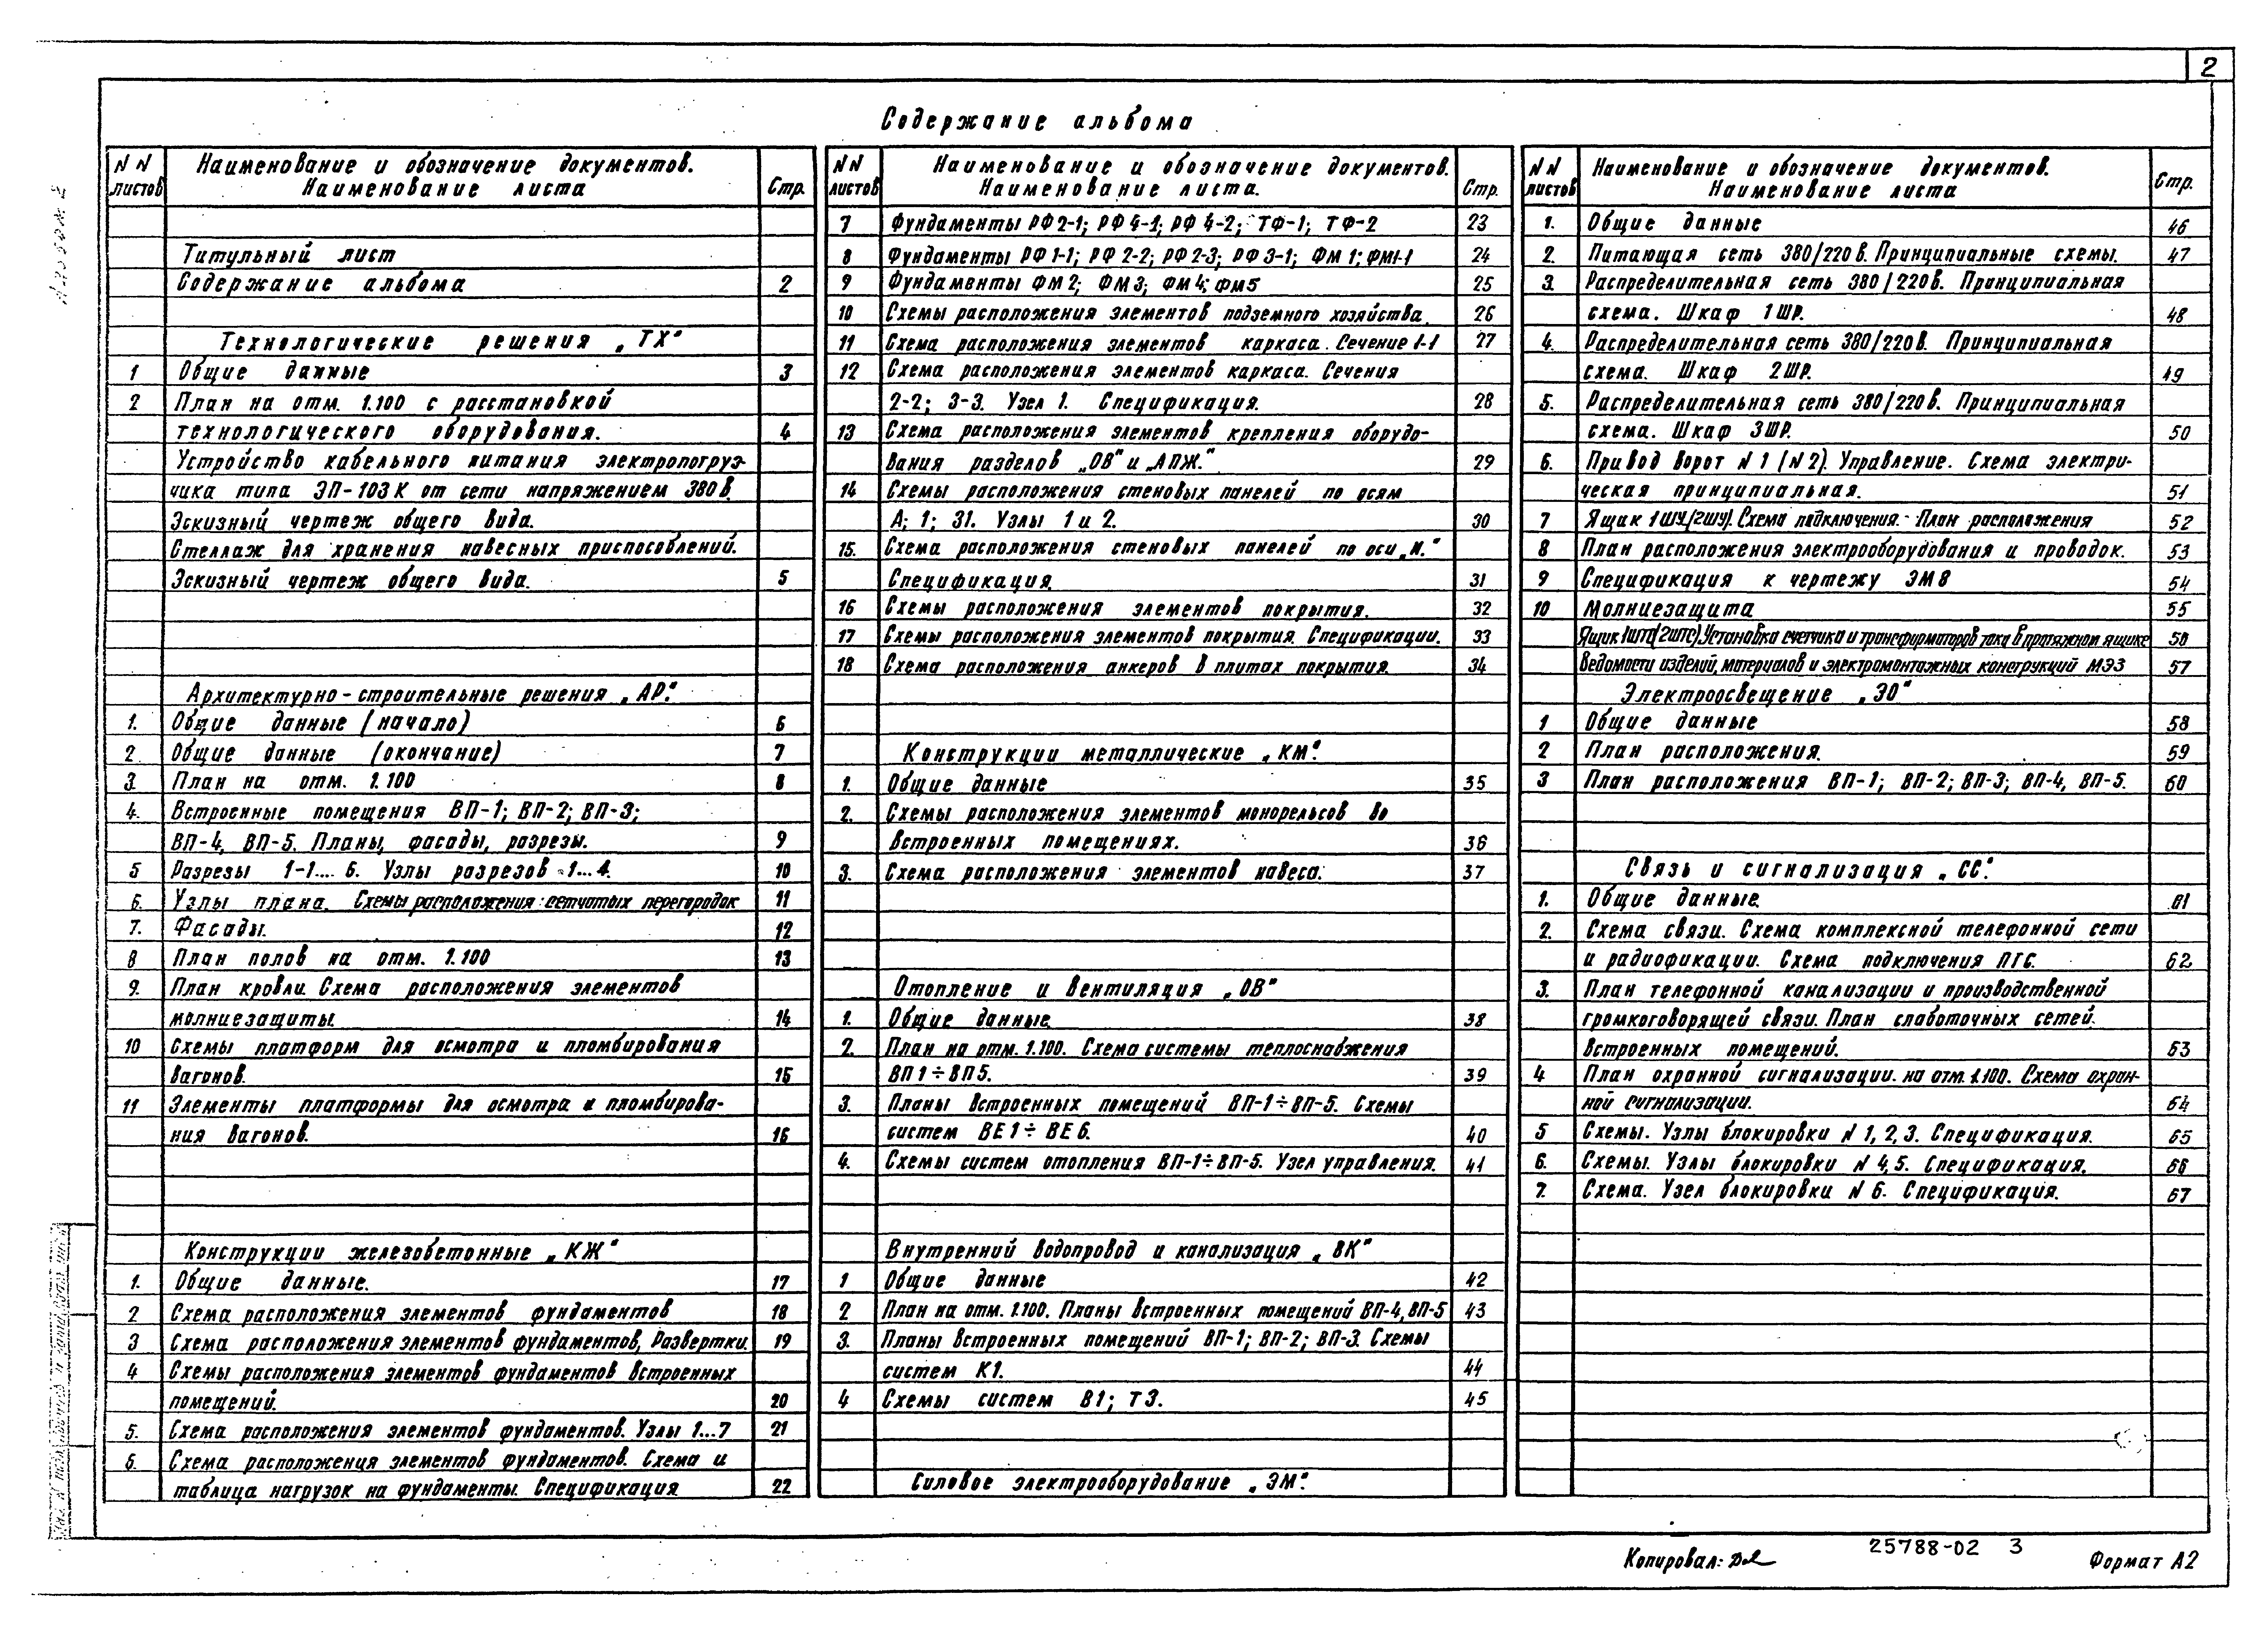 2
Содержание альбома
N N листов
Наименование и обозначение документов. Наименование листа
Стр.
Титульный лист
Содержание альбома 2
Технологические решения „ТХ"
1 Общие данные 3
2 План на отм. 1.100 с расстановкой
технологического оборудования. 4
Устройство кабельного питания электропогруз-
чика типа ЭП-103К от сети напряжением 380в.
Эскизный чертеж общего вида.
Стеллаж для хранения навесных приспособлений.
Эскизный чертеж общего вида. 5
Архитектурно-строительные решения „АР".
1. Общие данные (начало) 6
2. Общие данные (окончание) 7
3. План на отм. 1.100 8
4. Встроенные помещения ВП-1; ВП-2; ВП-3;
ВП-4, ВП-5. Планы, фасады, разрезы. 9
5 Разрезы 1-1.... 6. Узлы разрезов 1...4. 10
6. Узлы плана. Схемы расположения сетчатых перегородок 11
7. Фасады. 12
8 План полов на отм. 1.100 13
9. План кровли. Схема расположения элементов
молниезащиты. 14
10 Схемы платформ для осмотра и пломбирования
вагонов. 15
11 Элементы платформы для осмотра и пломбирова-
ния вагонов. 16
Конструкции железобетонные „КЖ"
1. Общие данные. 17
2 Схема расположения элементов фундаментов 18
3 Схема расположения элементов фундаментов, Развертки. 19
4 Схемы расположения элементов фундаментов встроенных
помещений. 20
5. Схема расположения элементов фундаментов. Узлы 1...7 21
6. Схема расположения элементов фундаментов. Схема и
таблица нагрузок на фундаменты. Спецификация 22
N N листов
Наименование и обозначение документов. Наименование листа.
Стр.
7 Фундаменты РФ2-1; РФ4-1; РФ4-2; ТФ-1; ТФ-2 23
8 Фундаменты РФ1-1; РФ2-2; РФ2-3; РФ3-1; ФМ1; ФМ1-1 24
9 Фундаменты ФМ2; ФМ3; ФМ4; ФМ5 25
10 Схемы расположения элементов подземного хозяйства. 26
11 Схема расположения элементов каркаса. Сечение 1-1 27
12 Схема расположения элементов каркаса. Сечения
2-2; 3-3. Узел 1. Спецификация. 28
13 Схема расположения элементов крепления оборудо-
вания разделов „ОВ" и „АПЖ." 29
14 Схемы расположения стеновых панелей по осям
А; 1; 31. Узлы 1 и 2. 30
15. Схема расположения стеновых панелей по оси „И."
Спецификация. 31
16 Схемы расположения элементов покрытия. 32
17 Схемы расположения элементов покрытия. Спецификации. 33
18 Схема расположения анкеров в плитах покрытия. 34
Конструкции металлические „КМ".
1. Общие данные 35
2. Схемы расположения элементов монорельсов во
встроенных помещениях. 36
3. Схема расположения элементов навеса. 37
Отопление и вентиляция „ОВ"
1. Общие данные. 38
2. План на отм. 1.100. Схема системы теплоснабжения
ВП1÷ВП5. 39
3. Планы встроенных помещений ВП-1÷ВП-5. Схемы
систем ВЕ1÷ВЕ6. 40
4. Схемы систем отопления ВП-1÷ВП-5. Узел управления. 41
Внутренний водопровод и канализация „ВК"
1 Общие данные 42
2 План на отм. 1.100. Планы встроенных помещений ВП-4, ВП-5 43
3. Планы встроенных помещений ВП-1; ВП-2; ВП-3. Схемы
систем К1. 44
4 Схемы систем В1; Т3. 45
Силовое электрооборудование „ЭМ".
N N листов
Наименование и обозначение документов. Наименование листа
Стр.
1. Общие данные 46
2. Питающая сеть 380/220в. Принципиальные схемы. 47
3. Распределительная сеть 380/220в. Принципиальная
схема. Шкаф 1ШР. 48
4. Распределительная сеть 380/220в. Принципиальная
схема. Шкаф 2ШР. 49
5. Распределительная сеть 380/220в. Принципиальная
схема. Шкаф 3ШР. 50
6. Привод ворот N1 (N2). Управление. Схема электри-
ческая принципиальная. 51
7 Ящик 1ШУ(2ШУ). Схема подключения. План расположения 52
8 План расположения электрооборудования и проводок. 53
9 Спецификация к чертежу ЭМ8 54
10 Молниезащита 55
Ящик 1ШТ(2ШТС). Установка счетчика и трансформаторов тока в протяжном ящике 56
Ведомости изделий, материалов и электромонтажных конструкций МЭЗ 57
Электроосвещение „ЭО"
1 Общие данные 58
2 План расположения. 59
3 План расположения ВП-1; ВП-2; ВП-3; ВП-4, ВП-5. 60
Связь и сигнализация „СС".
1. Общие данные. 61
2. Схема связи. Схема комплексной телефонной сети
и радиофикации. Схема подключения ПГС. 62
3. План телефонной канализации и производственной
громкоговорящей связи. План слаботочных сетей.
встроенных помещений. 63
4 План охранной сигнализации. на отм. 1.100. Схема охран-
ной сигнализации. 64
5 Схемы. Узлы блокировки N 1, 2, 3. Спецификация. 65
6. Схемы. Узлы блокировки N 4, 5. Спецификация. 66
7. Схема. Узел блокировки N 6. Спецификация. 67
Копировал:
25788-02 3
Формат А2